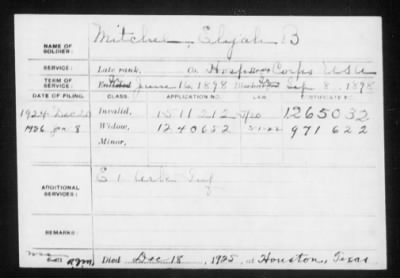 NAME OF SOLDIER: Mitchell, Elijah B
SERVICE: Late rank, Co. Hosp Corps USA
TERM OF SERVICE: Enlisted June 16, 1898 Discharged Sep 8, 1898
DATE OF FILING. CLASS. APPLICATION NO. LAW. CERTIFICATE NO.
1924 Dec 20 Invalid, 1511212 1265032
1926 Jan 8 Widow, 1240652 971622
Minor,
ADDITIONAL SERVICES: E 1 Inf
REMARKS:
Died Dec 18, 1925, at Houston, Texas